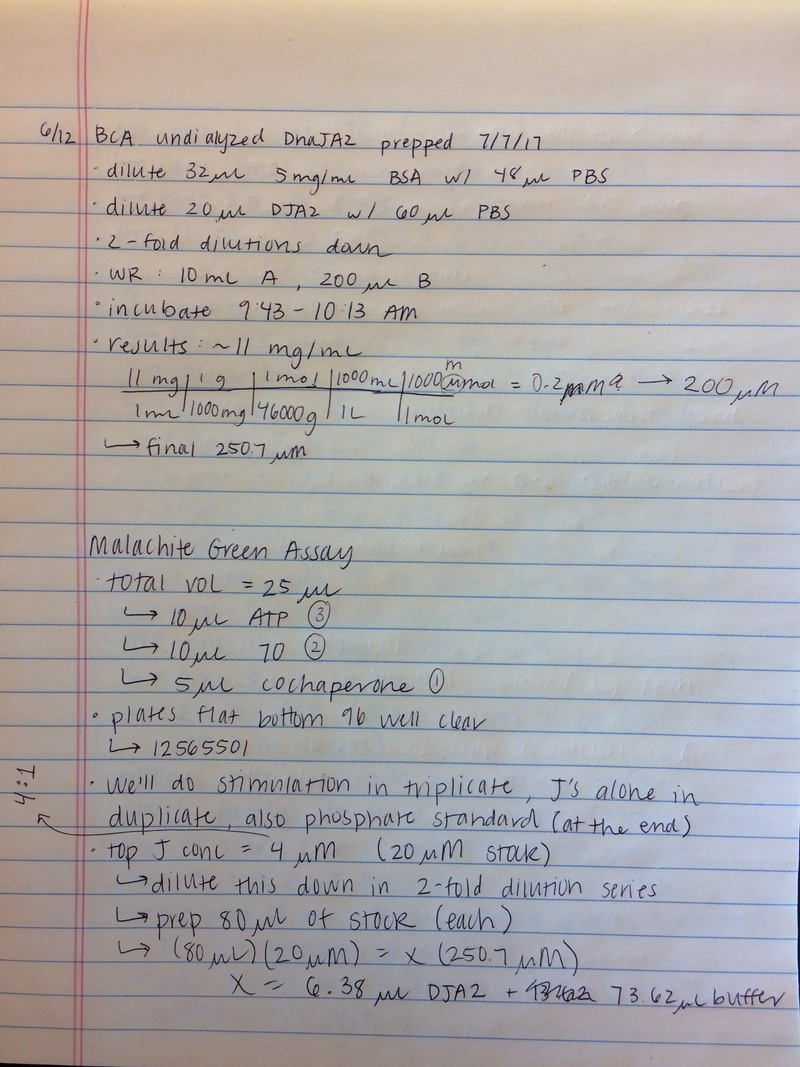 6/12 BCA undialyzed DnaJA2 prepped 7/7/17
· dilute 32 μL 5 mg/mL BSA w/ 48 μL PBS
· dilute 20 μL DJA2 w/ 60 μL PBS
· 2-fold dilutions down
· WR : 10 mL A , 200 μL B
· incubate 9:43 - 10:13 AM
· results: ~11 mg/mL
m
11 mg | 1 g | 1 mol | 1000 mL | 1000 μmol = 0.2 mM? → 200 μM
1 mL | 1000 mg | 46000 g | 1 L | 1 mol
↳ final 250.7 μM
Malachite Green Assay
· total vol = 25 μL
↳ 10 μL ATP ③
↳ 10 μL 70 ②
↳ 5 μL cochaperone ①
· plates flat bottom 96 well clear
↳ 12565501
· We'll do stimulation in triplicate, J's alone in
duplicate, also phosphate standard (at the end)
4:1
· top J conc = 4 μM (20 μM stock)
↳ dilute this down in 2-fold dilution series
↳ prep 80 μL of stock (each)
↳ (80 μL)(20 μM) = x (250.7 μM)
x = 6.38 μL DJA2 + 73.62 μL buffer